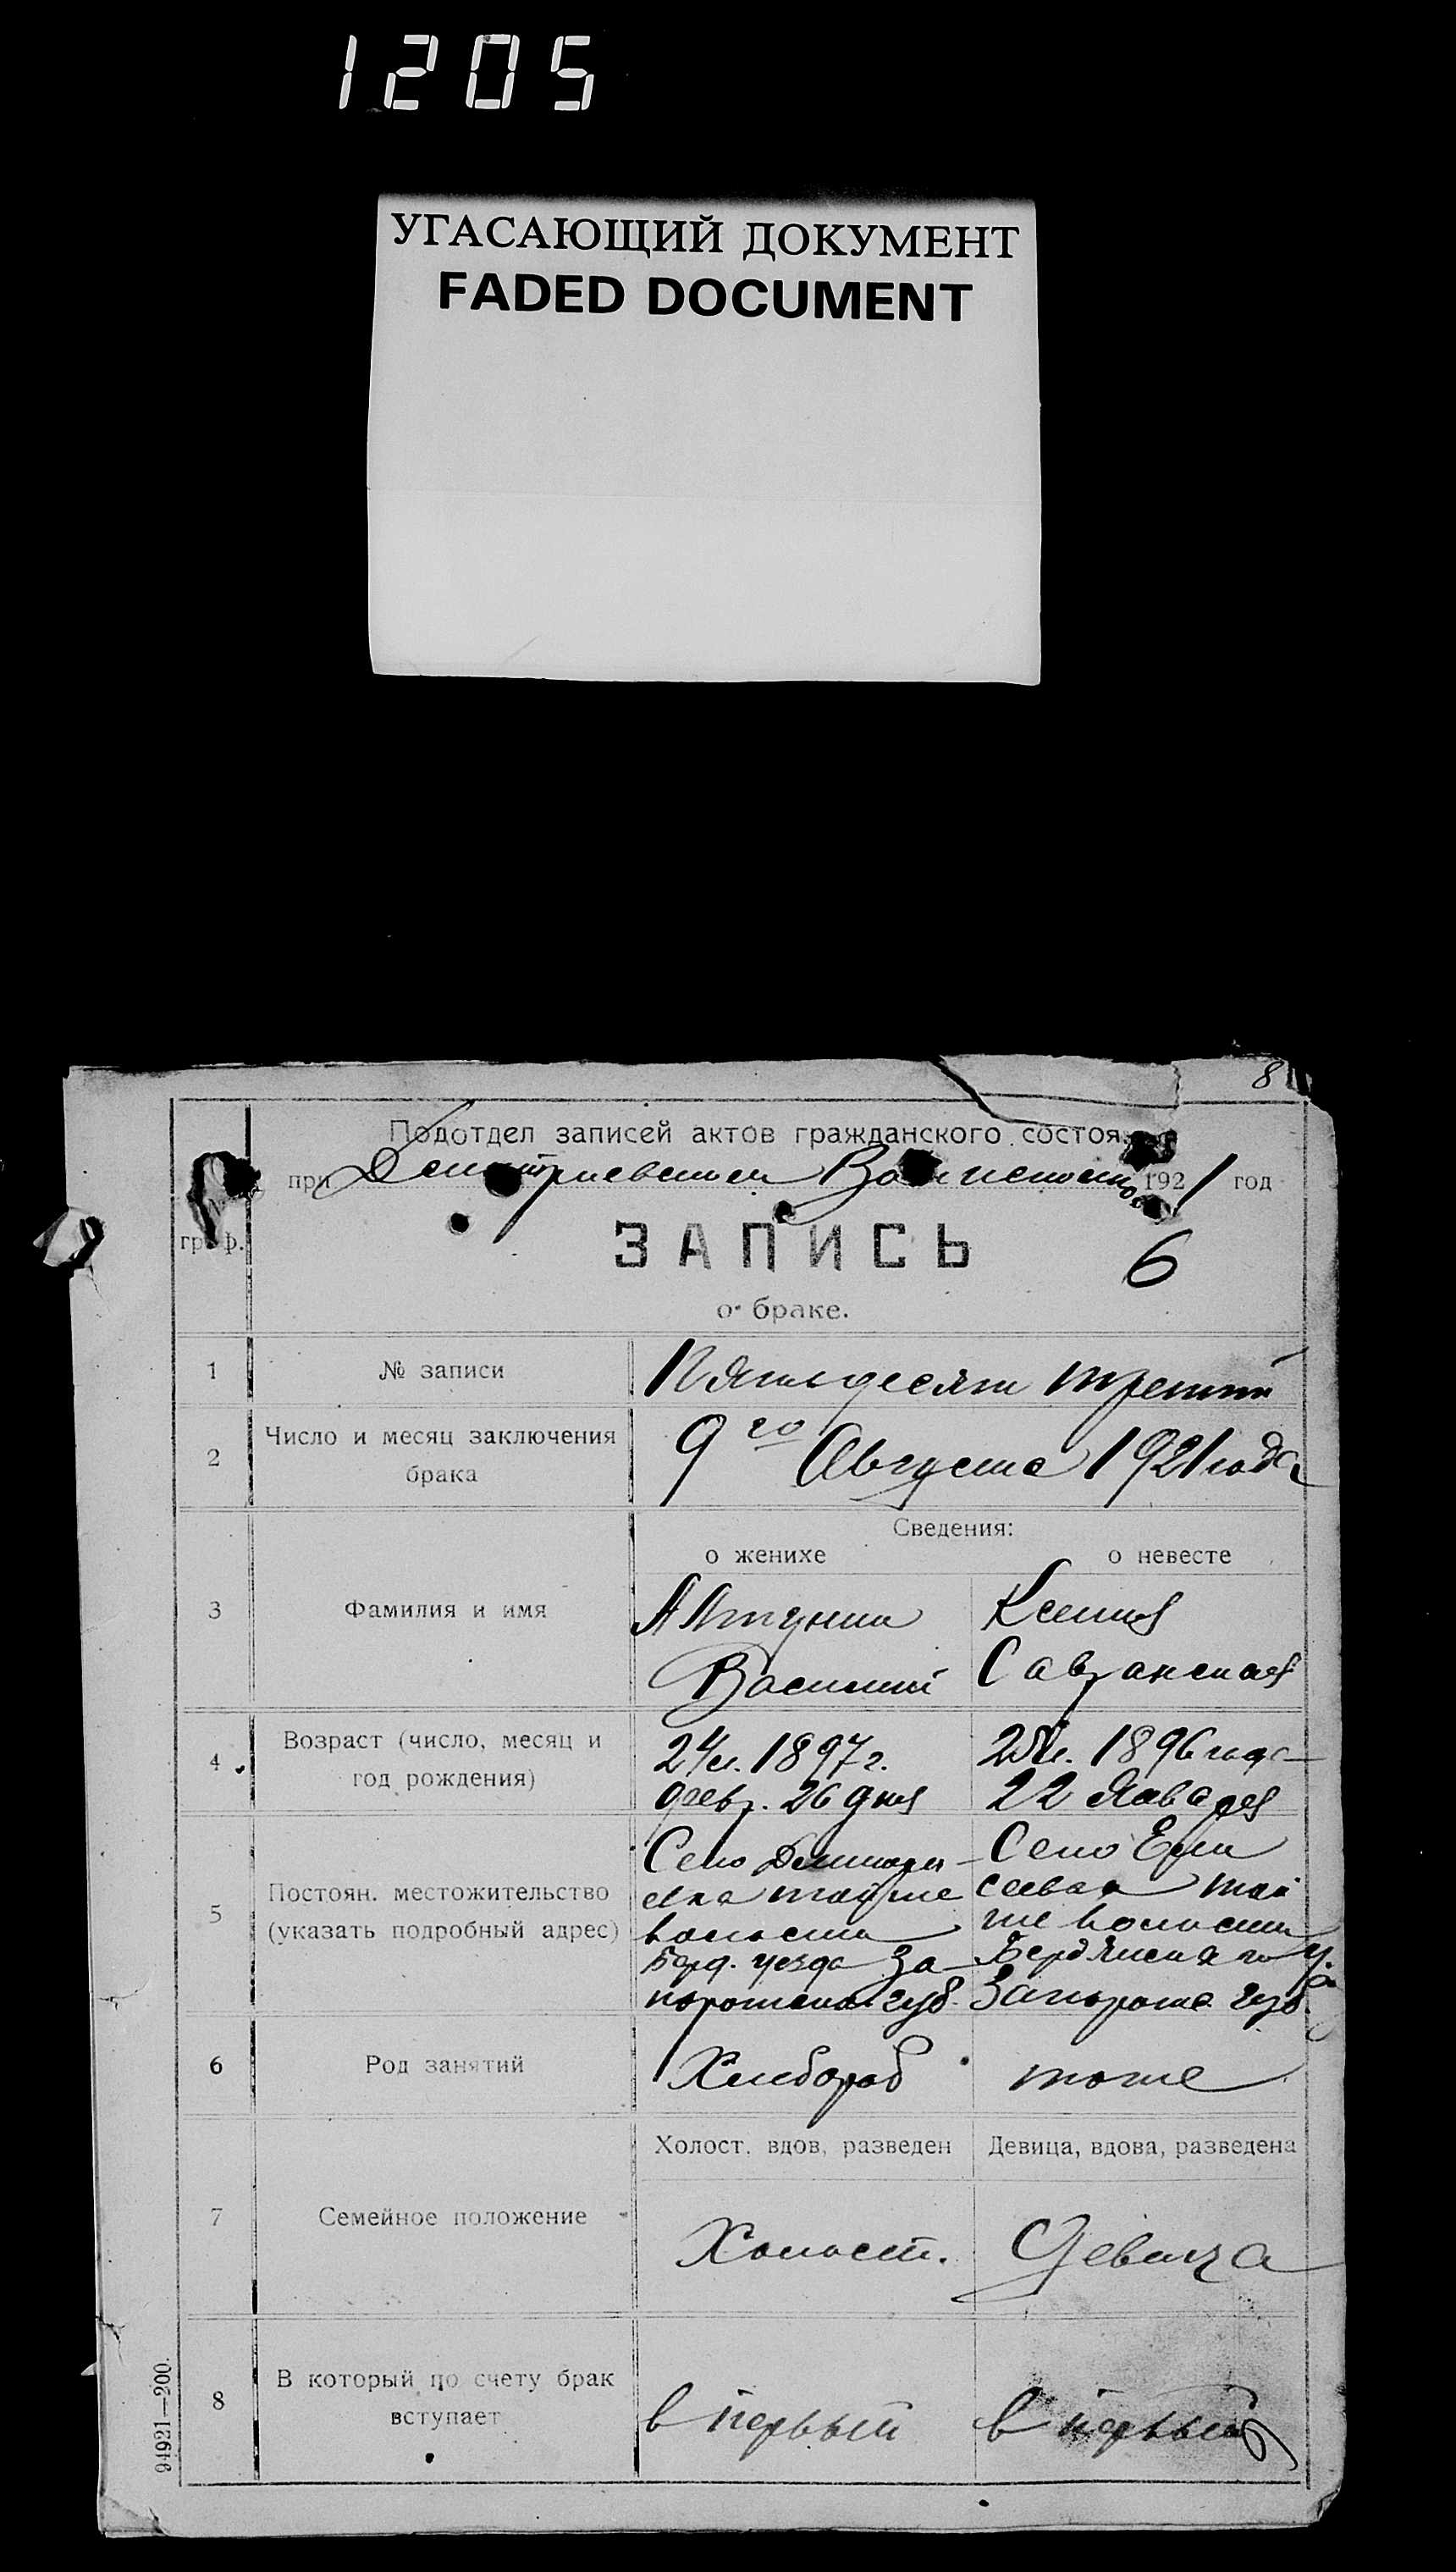 1205
УГАСАЮЩИЙ ДОКУМЕНТ
FADED DOCUMENT
8
Подотдел записей актов гражданского состоя
при Дмитриевском 1921 год
граф.
ЗАПИСЬ
6
о браке.
1 № записи Пятьдесят третий
2 Число и месяц заключения брака 9го Августа 1921 года
Сведения:
о женихе о невесте
3 Фамилия и имя
Ксения
Василий Савранская
4 Возраст (число, месяц и год рождения)
24 л. 1897 г. 25 л. 1896 года
февр. 26 дня 22 Января
5 Постоян. местожительство (указать подробный адрес)
Село Село Ели
той же сеевка той
волости же волости
Берд. уезда За- Бердянскаго у.
порожской губ. Запорож. губ.
6 Род занятий Хлебороб тоже
Холост, вдов, разведен Девица, вдова, разведена
7 Семейное положение Холост. Девица
8 В который по счету брак вступает в первый в первый
94921—200.